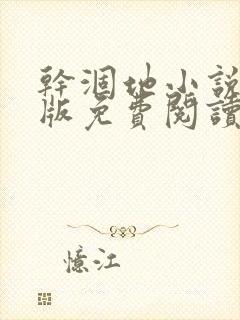 幹涸地小說
版免費閱讀
憶江